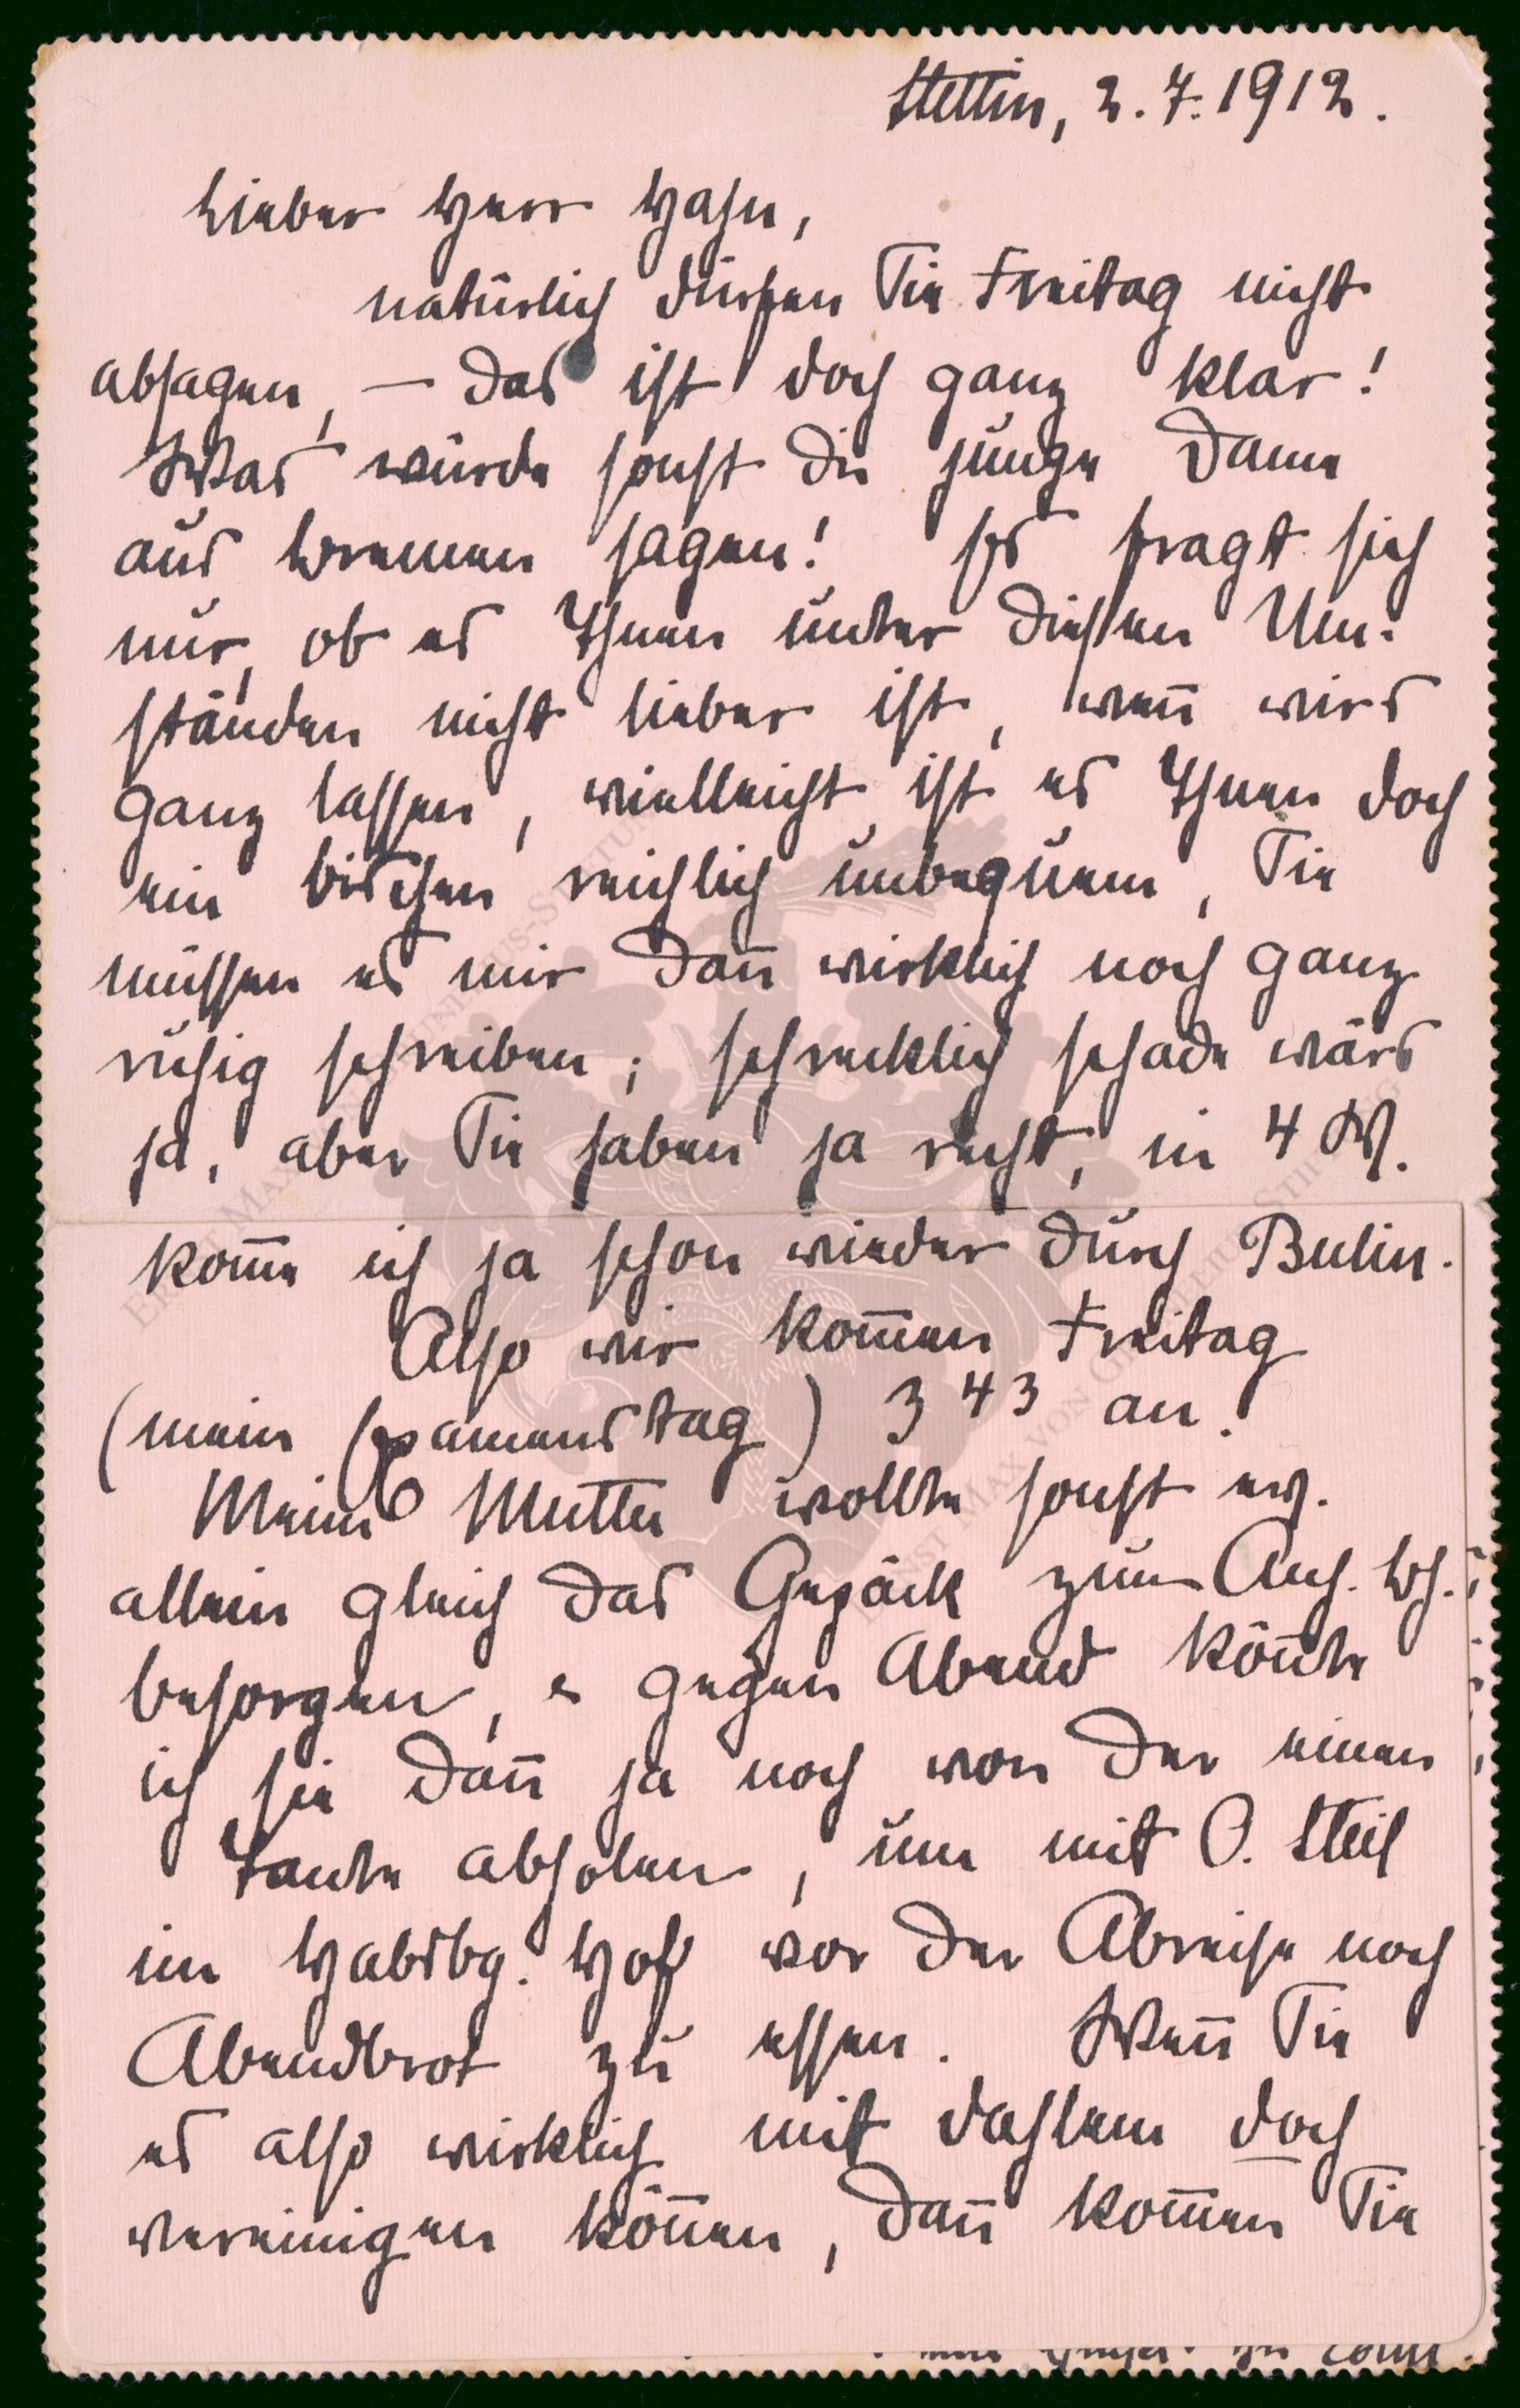 Stettin, 2.7.1912.
Lieber Herr Hahn,
natürlich dürfen Sie Freitag nicht
absagen, — das ist doch ganz klar!
Was würde sonst die junge Dame
aus Bremen sagen! Es fragt sich
nur, ob es Ihnen unter diesen Um-
ständen nicht lieber ist, wenn wirs
ganz lassen, vielleicht ist es Ihnen doch
ein bischen reichlich unbequem, Sie
müssen es mir dann wirklich noch ganz
ruhig schreiben; schrecklich schade wärs
ja, aber Sie haben ja recht, in 4 W.
komme ich ja schon wieder durch Berlin.
Also wir kommen Freitag
(mein tag) 3 43 an.
Meine Mutter wollte sonst ev.
allein gleich das Gepäck zum Anh. Bh.
besorgen, gegen Abend könnte
ich sie dann ja noch von der einen
Tante abholen, um mit O. Steih
im Habsbg. Hof vor der Abreise noch
Abendbrot zu essen. Wenn Sie
es also wirklich mit Dahlem doch
vereinigen können, dann kommen Sie